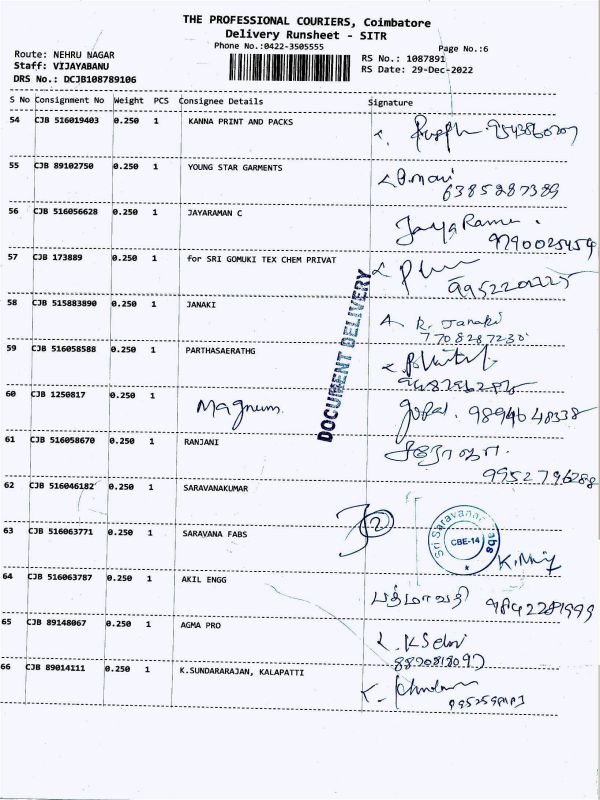 THE PROFESSIONAL COURIERS, Coimbatore
Delivery Runsheet - SITR
Phone No.:0422-3505555
Page No.:6
Route: NEHRU NAGAR
Staff: VIJAYABANU
DRS No.: DCJB108789106
RS No.: 1087891
RS Date: 29-Dec-2022
S No Consignment No Weight PCS Consignee Details Signature
54 CJB 516019403 0.250 1 KANNA PRINT AND PACKS
55 CJB 89102750 0.250 1 YOUNG STAR GARMENTS
6385287389
56 CJB 516056628 0.250 1 JAYARAMAN C
57 CJB 173889 0.250 1 for SRI GOMUKI TEX CHEM PRIVAT
58 CJB 515883890 0.250 1 JANAKI
R. Janaki
7708287230
59 CJB 516058588 0.250 1 PARTHASAERATHG
60 CJB 1250817 0.250 1 Magnum. Gopal. 9894648338
DOCUMENT DELIVERY
61 CJB 516058670 0.250 1 RANJANI
9952796288
62 CJB 516046182 0.250 1 SARAVANAKUMAR
63 CJB 516063771 0.250 1 SARAVANA FABS
2
Sri Saravana Fabs
CBE-14
64 CJB 516063787 0.250 1 AKIL ENGG
பத்மாவதி 9842281999
65 CJB 89148067 0.250 1 AGMA PRO
66 CJB 89014111 0.250 1 K.SUNDARARAJAN, KALAPATTI